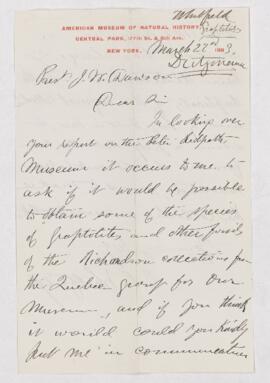 Whitfield
AMERICAN MUSEUM OF NATURAL HISTORY
Graptolites
CENTRAL PARK, 77TH St. & 8TH AVE.
NEW YORK, March 22nd 1883.
Dictyonema
Prest J. W. Dawson
Dear Sir
In looking over
your report on the Peter Redpath
Museum it occurs to me to
ask if it would be possible
to obtain some of the species
of Graptolites and other fossils
of the Richardson collections from
the Quebec group for Our
Museum, and if you think
it would could you kindly
put me in communication